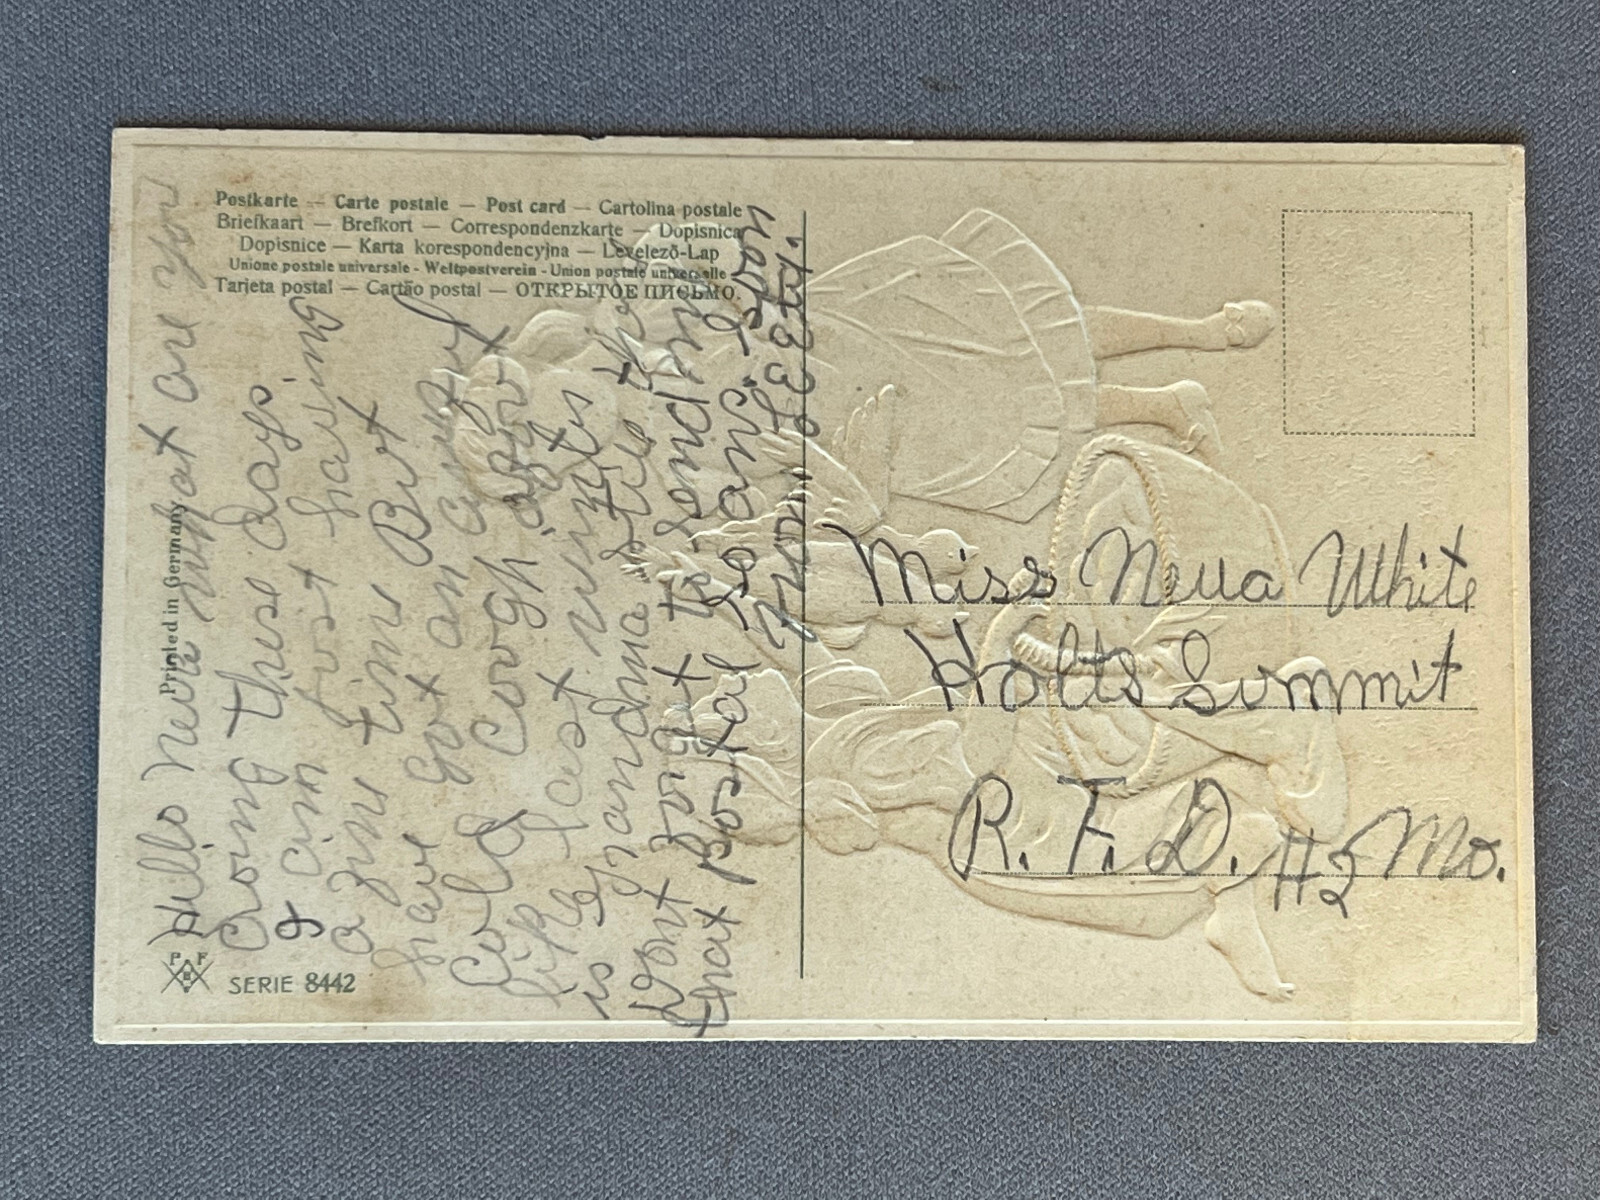 Postkarte — Carte postale — Post card — Cartolina postale
Briefkaart — Brefkort — Correspondenzkarte — Dopisnica
Dopisnice — Karta korespondencyjna — Levelező-Lap
Unione postale universale - Weltpostverein - Union postale universelle
Tarjeta postal — Cartão postal — ОТКРЫТОЕ ПИСЬМО.
Printed in Germany
P F
B
SERIE 8442
Hello what are you
Doing these days.
I am just having
a fine time But
have Got an awful
Cold Cough about
like last winter
is grandma still there
Dont forget to send me
that Postal So ans. Soon
From
Miss Neva White
Holts Summit
R. F. D. #2 Mo.